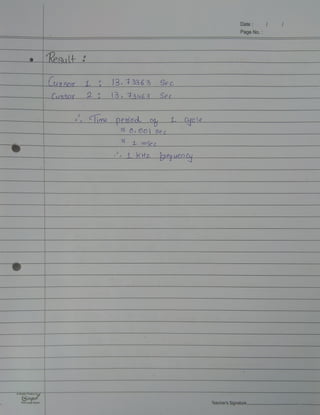 Date : / /
Page No. :
• Result :
Cursor 1 : 13.73363 Sec
Cursor 2 : 13.73463 Sec
∴ Time period of 1 cycle
≈ 0.001 sec
≈ 1 msec
∴ 1 kHz frequency
Teacher's Signature